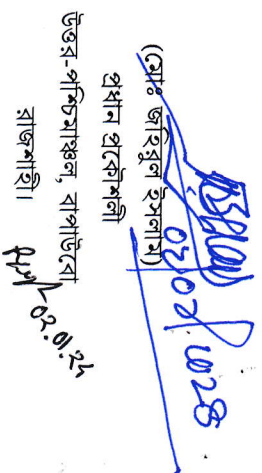 ০২০১/২০২৪
(মোঃ জহিরুল ইসলাম)
প্রধান প্রকৌশলী
উত্তর-পশ্চিমাঞ্চল, বাপাউবো
রাজশাহী।
02.01.24